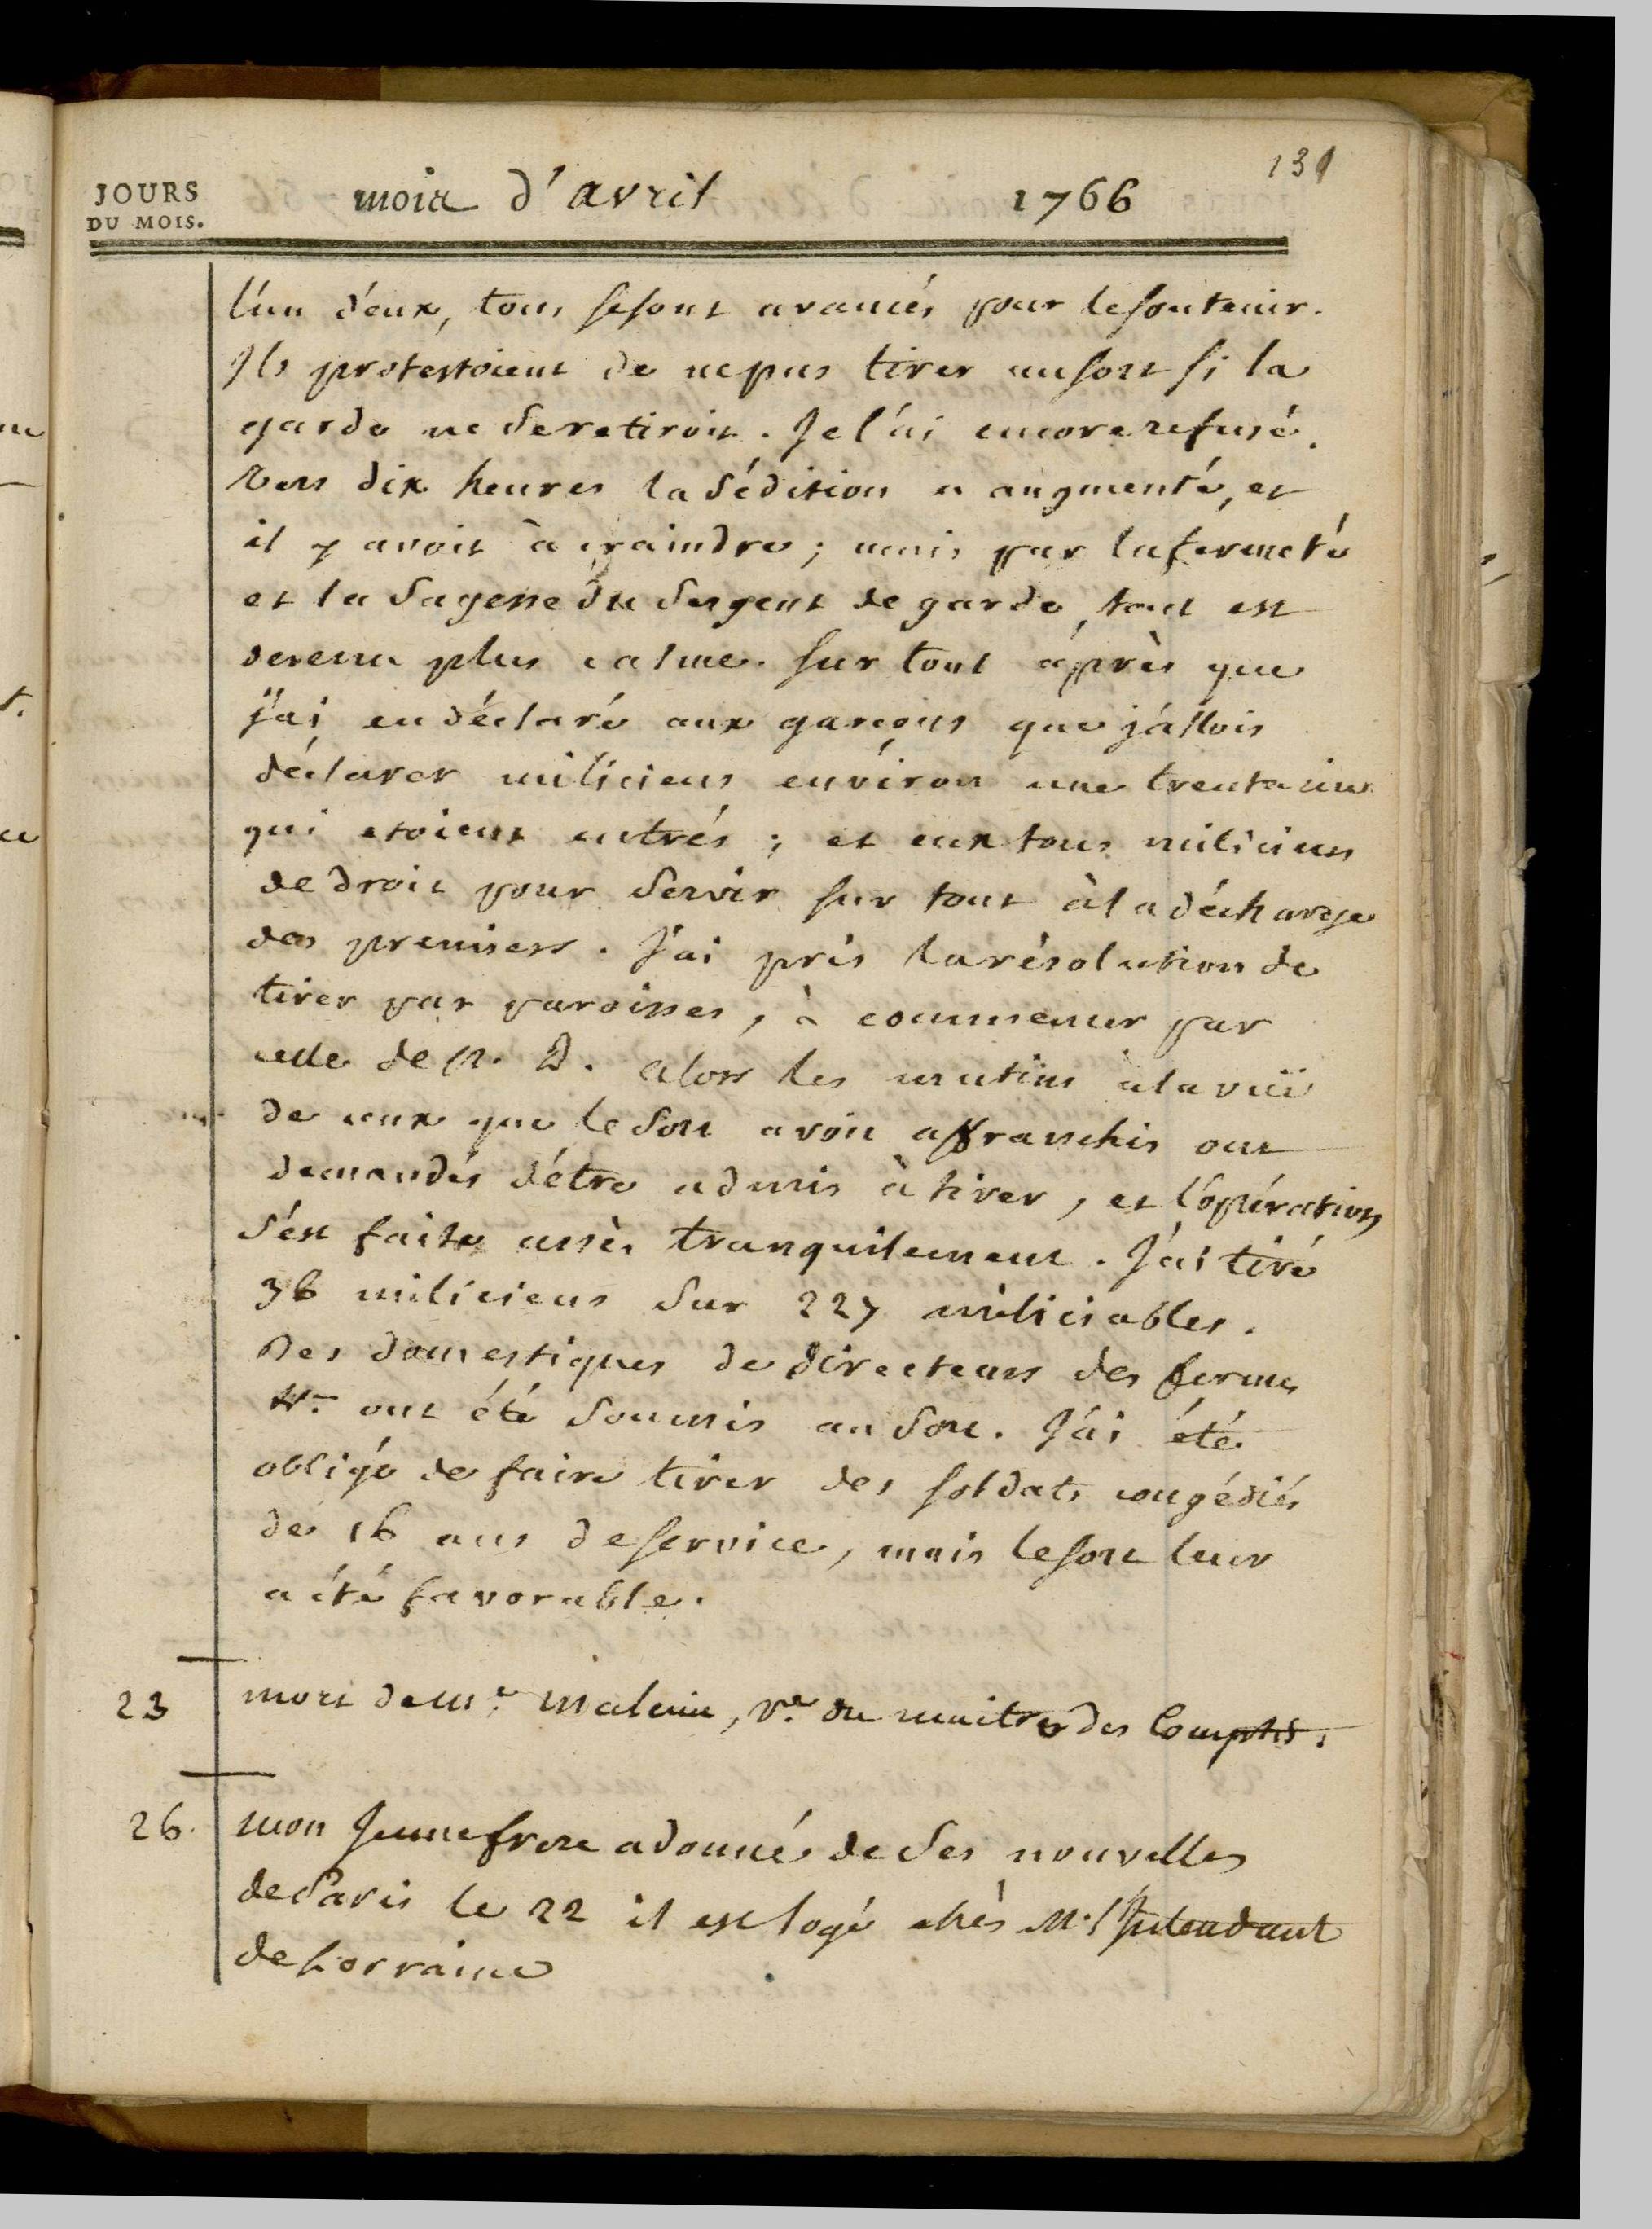 131
JOURS
DU MOIS.
mois d'avril 1766
l'un d'eux, tous se sont avancés pour le soutenir.
Ils protestoient de ne pas tirer au sort si la
garde ne se retiroit. Je l'ai encore refusé.
Vers dix heures la sédition a augmenté, et
il y avoit à craindre; mais par la fermeté
et la sagesse du sergent de garde, tout est
devenu plus calme. sur tout après que
j'ai eu déclaré aux garçons que j'allois
déclarer miliciens environ une trentaine
qui etoient entrés; et eux tous miliciens
de droit pour servir sur tout à la décharge
des premiers. J'ai pris la résolution de
tirer par paroisses, à commencer par
celle de N. D. alors les mutins à la vüe
de ceux que le sort avoit affranchis ont
demandés d'être admis à tirer, et l'opération
s'est faite assès tranquilement. J'ai tiré
36 miliciens sur 227 miliciables.
Des domestiques de directeurs des fermes
&c. ont été soumis au sort. J'ai été
obligé de faire tirer des soldats congédiés
de 16 ans de service, mais le sort leur
a été favorable.
23 mort de Me. , ve. du maitre des Comptes.
26. mon Jeune frere a donné de ses nouvelles
de Paris le 22 il est logé chès M. l'Intendant
de Lorraine